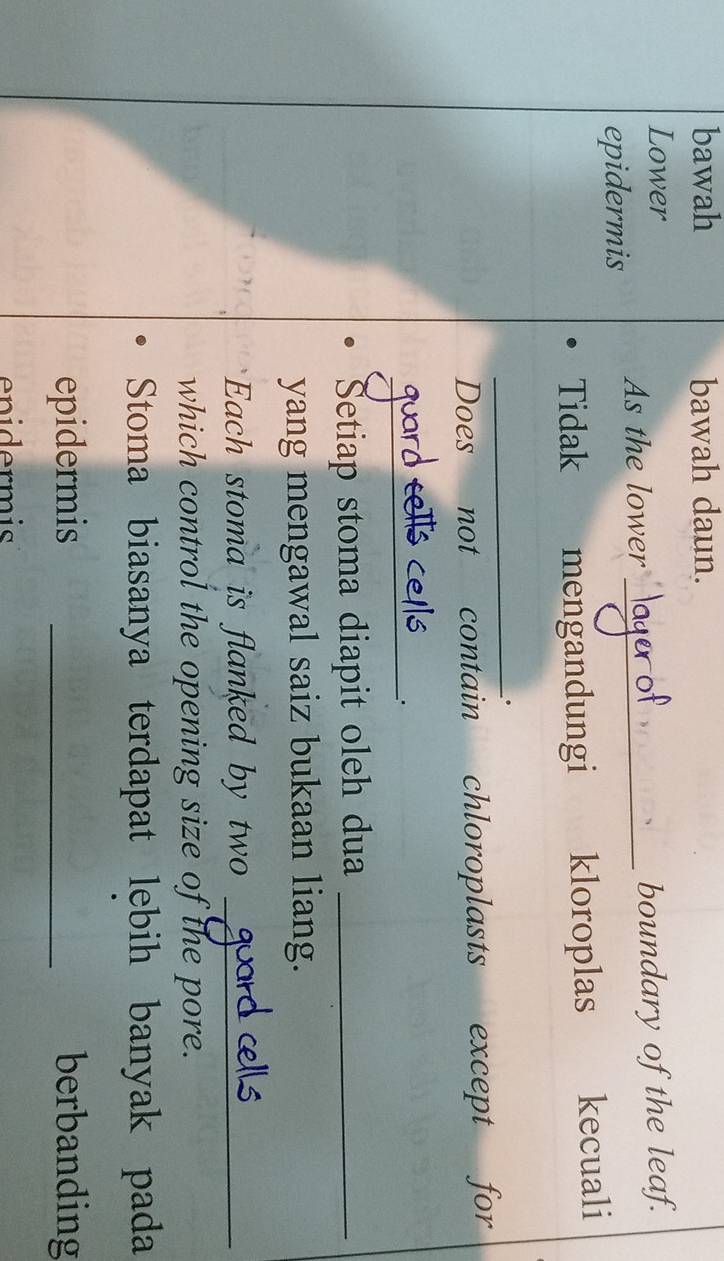 bawah
Lower
epidermis
bawah daun.
As the lower layer of boundary of the leaf.
• Tidak mengandungi kloroplas kecuali
.
Does not contain chloroplasts except for
guard cells cells.
• Setiap stoma diapit oleh dua
yang mengawal saiz bukaan liang.
Each stoma is flanked by two guard cells
which control the opening size of the pore.
• Stoma biasanya terdapat lebih banyak pada
epidermis berbanding
epidermis